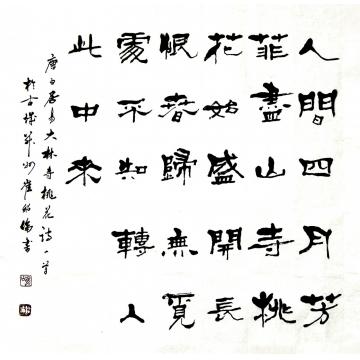 人間四月芳
菲盡山寺桃
花始盛開長
恨春歸無覓
處不知轉入
此中來
唐白居易大林寺桃花詩一首
於古并州崔書